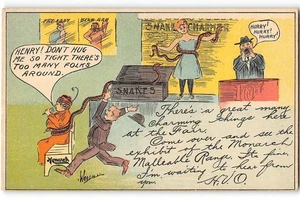 SNAKE CHARMER
HURRY!
HURRY!
HURRY!
HENRY! DON'T HUG
ME SO TIGHT. THERE'S
TOO MANY FOLKS
AROUND.
SNAKES
Monarch
There's a great many
Charming things here
at the Fair.
Come over and see the
exhibit of the Monarch
Malleable Range. Its fine.
I'm waiting to hear from
you.
H.V.O.